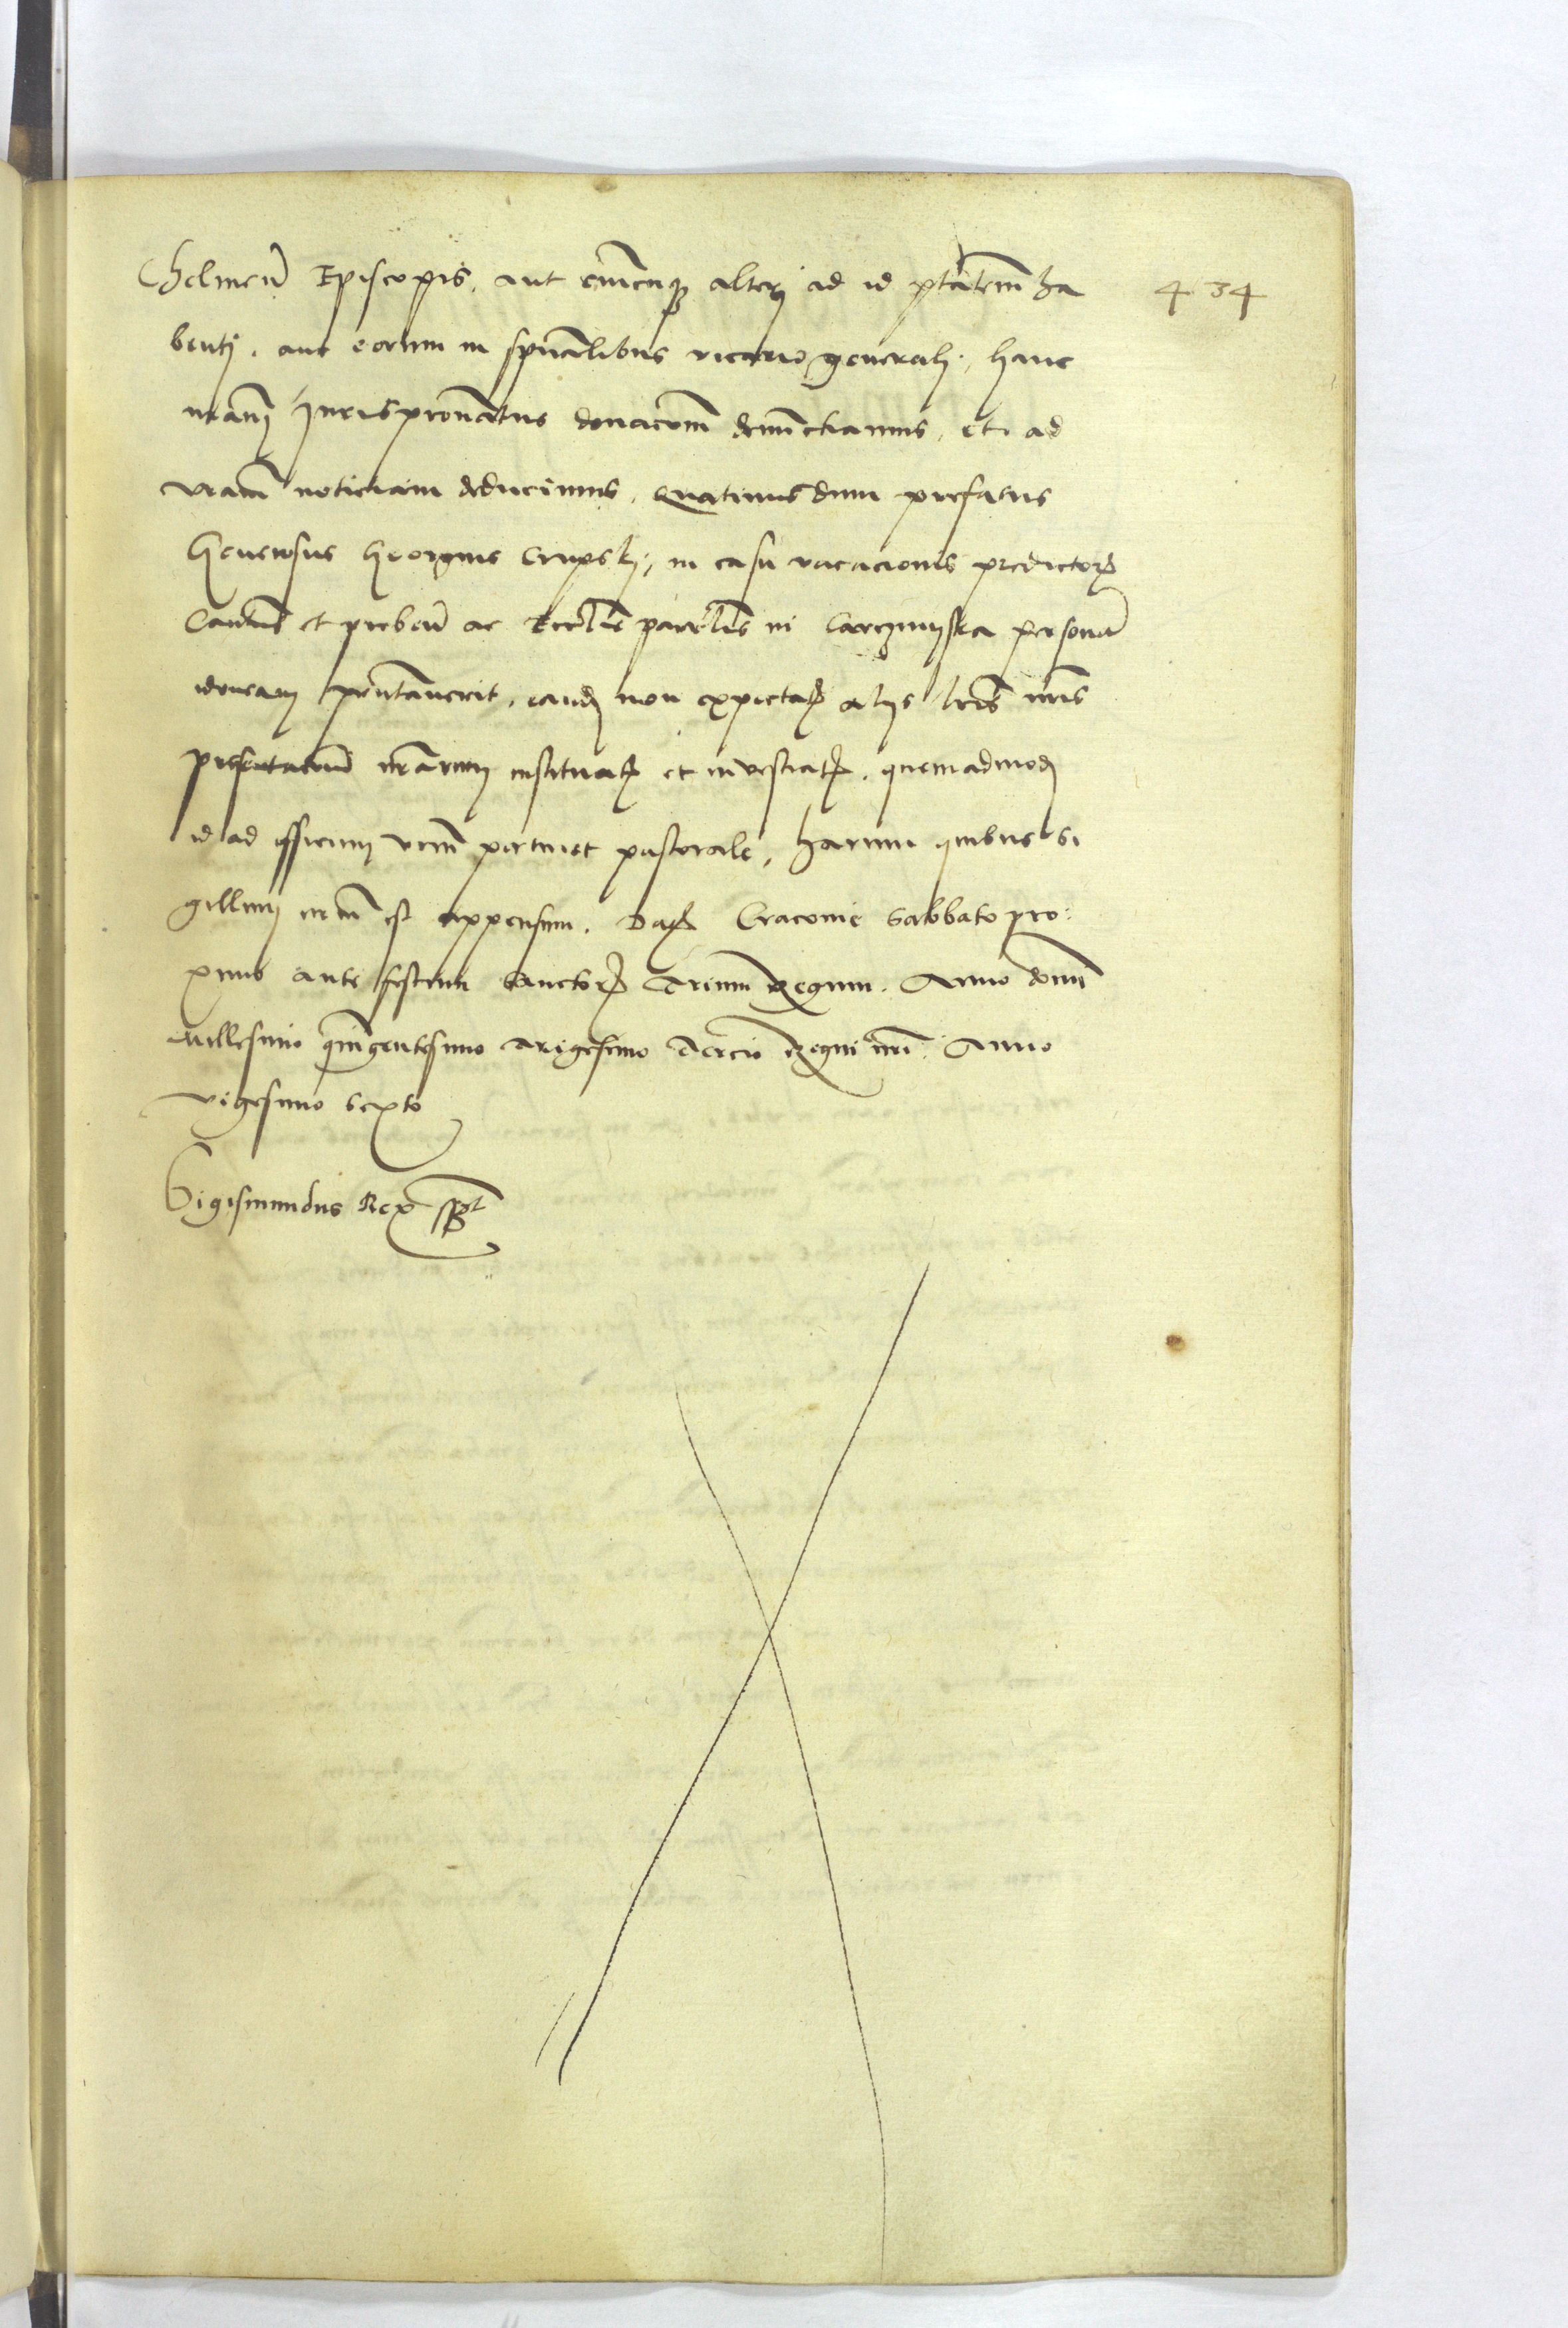 Chelmen̄ Episcopis, aut cuicunq̧ alterj ad id ptātem̄ ha 434
bentj, aut eorum in spūalibus vicario generalj, hanc
nr̄am Jurispatronatus donacōm denūctiamus, et ad
vr̄am noticiam deducimus, Quatinus dum prefatus
Generosus Georgius Crupskj, in casu vacacionis predictoꝝ
Canōnis et preben̄ ac Eccl̄ie parr̄lis in Carczmyska personā
idoneam pr̄ntauerit, eandē non expectatꝭ alijs lr̄is nr̄is
presentacionū nr̄arum instituatꝭ et inuestiatꝭ, quemadmodū
id ad officium vr̄m pertinet pastorale, harum quibus si
gillum nr̄m est appensum. Datꝭ Cracovie Sabbato pro:
ximo ante festum Sanctoꝝ Trium Regum. Anno domī
Millesimo quīngentesimo Trigesimo Tercio Regni nr̄i Anno
vigesimo Sexto
Sigismundus Rex sst